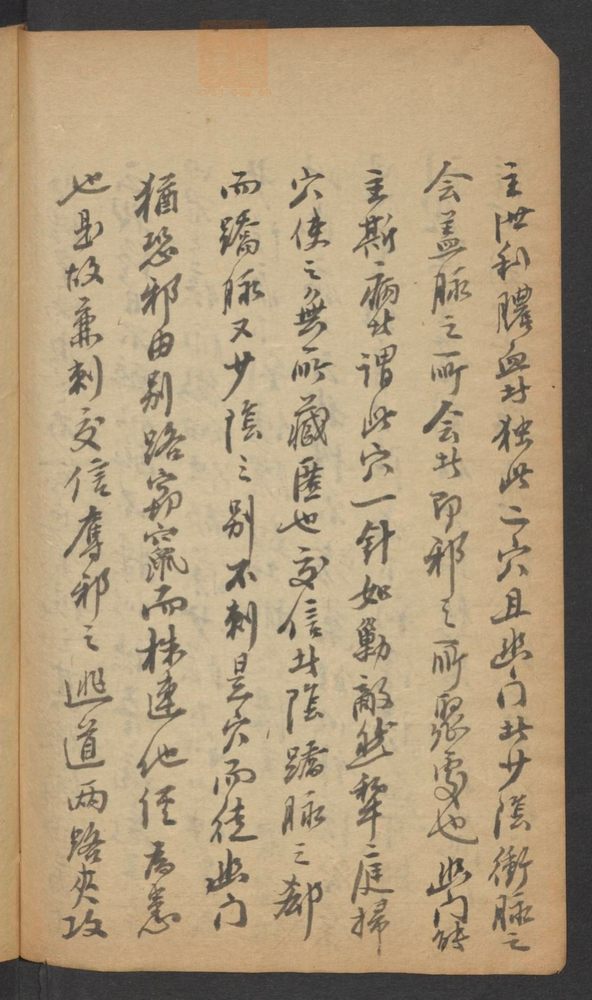 主泄利膿血者独此二穴且幽门者少陰衝脉之
会盖脉之所会者即邪之所聚處也幽门能
主斯病者謂此穴一針如勦敵然犂庭掃
穴使之無所藏匿也交信者陰蹻脉之郄
而蹻脉又少陰之别不刺是穴而徒幽门
猶恐邪由别路窈竄而株連他经為患
也是故兼刺交信奪邪之逃道两路夾攻